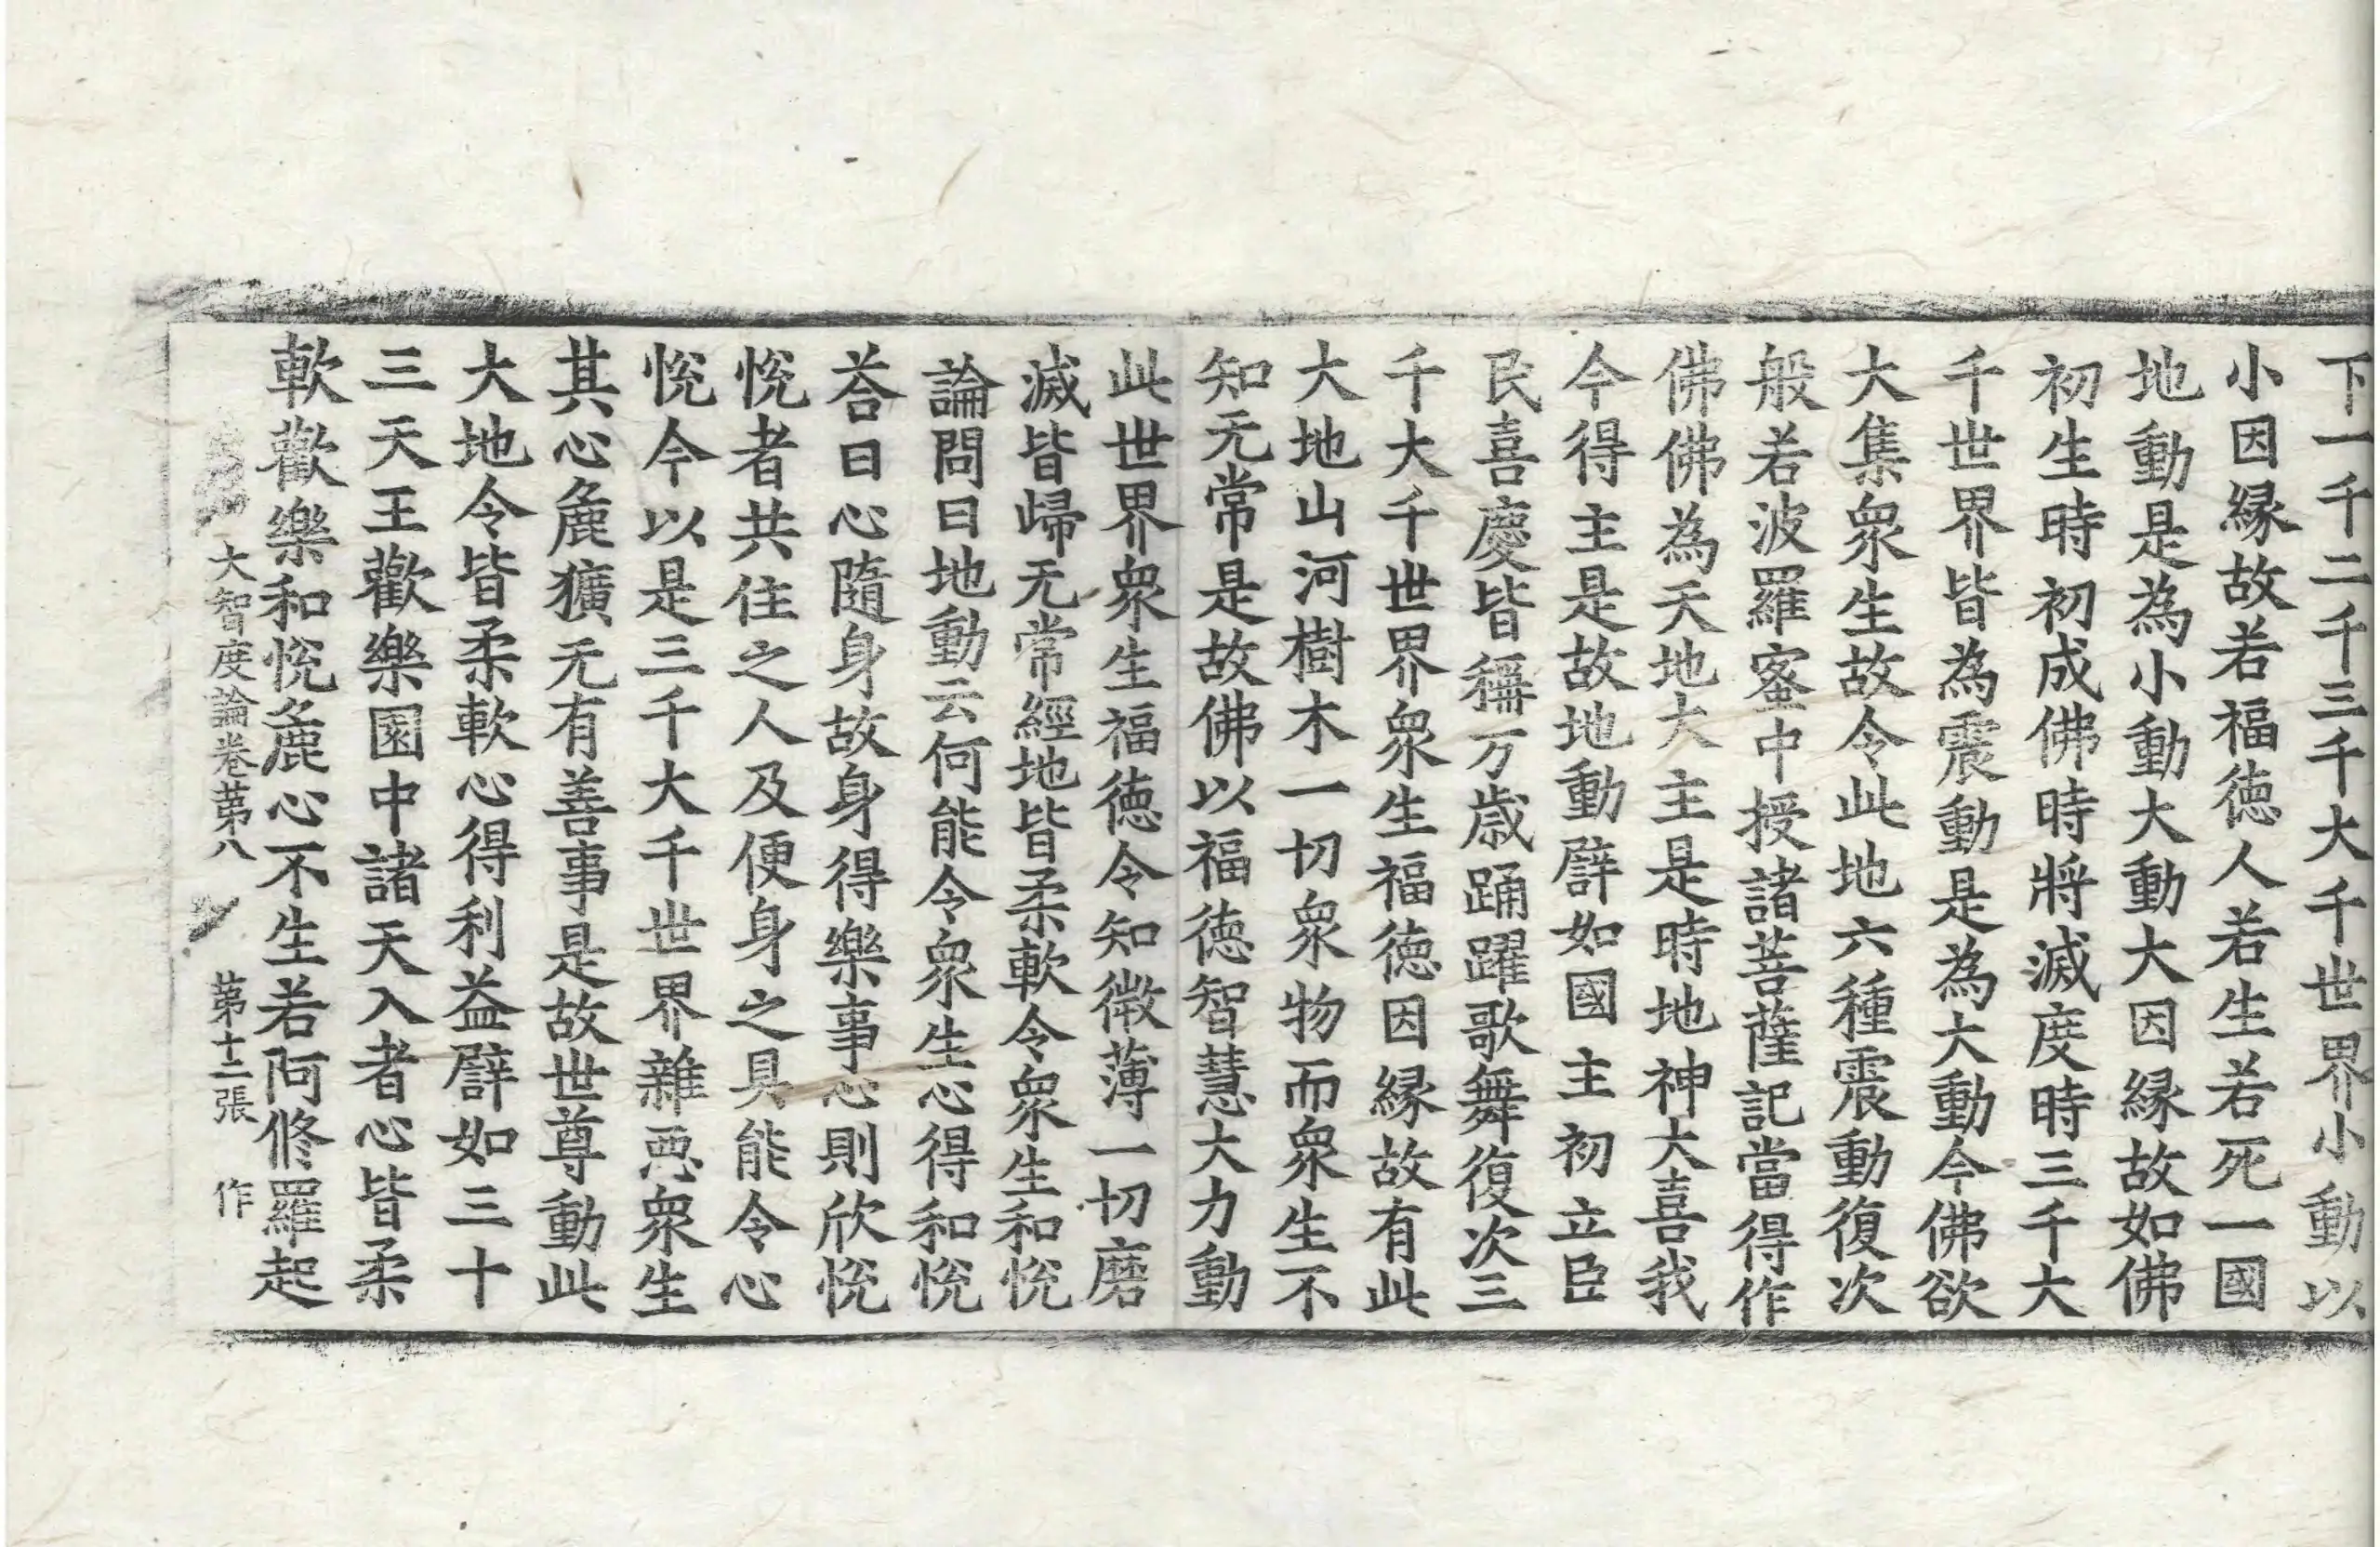 下一千二千三千大千世界小動以
小因縁故若福徳人若生若死一國
地動是為小動大動大因縁故如佛
初生時初成佛時將滅度時三千大
千世界皆為震動是為大動今佛欲
大集衆生故令此地六種震動復次
般若波羅蜜中授諸菩薩記當得作
佛佛為天地大主是時地神大喜我
今得主是故地動譬如國主初立臣
民喜慶皆稱万歳踊躍歌舞復次三
千大千世界衆生福徳因縁故有此
大地山河樹木一切衆物而衆生不
知无常是故佛以福徳智慧大力動
此世界衆生福徳令知微薄一切磨
滅皆歸无常經地皆柔軟令衆生和悅
論問曰地動云何能令衆生心得和悅
荅曰心隨身故身得樂事心則欣悅
悅者共住之人及便身之具能令心
悅今以是三千大千世界雜惡衆生
其心麁獷无有善事是故世尊動此
大地令皆柔軟心得利益譬如三十
三天王歡樂園中諸天入者心皆柔
軟歡樂和悅麁心不生若阿修羅起
大智度論卷苐八 苐十二張 作